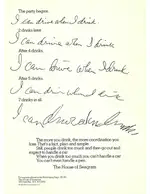 The party begins.
I can drive when I drink.
2 drinks later.
I can drive when I drink.
After 4 drinks.
I can drive when I drink
After 5 drinks.
I can drive when I drink
7 drinks in all.
I can drive when I drink
The more you drink, the more coordination you
lose. That's a fact, plain and simple.
Still, people drink too much and then go out and
expect to handle a car.
When you drink too much, you can't handle a car.
You can't even handle a pen.
The House of Seagram